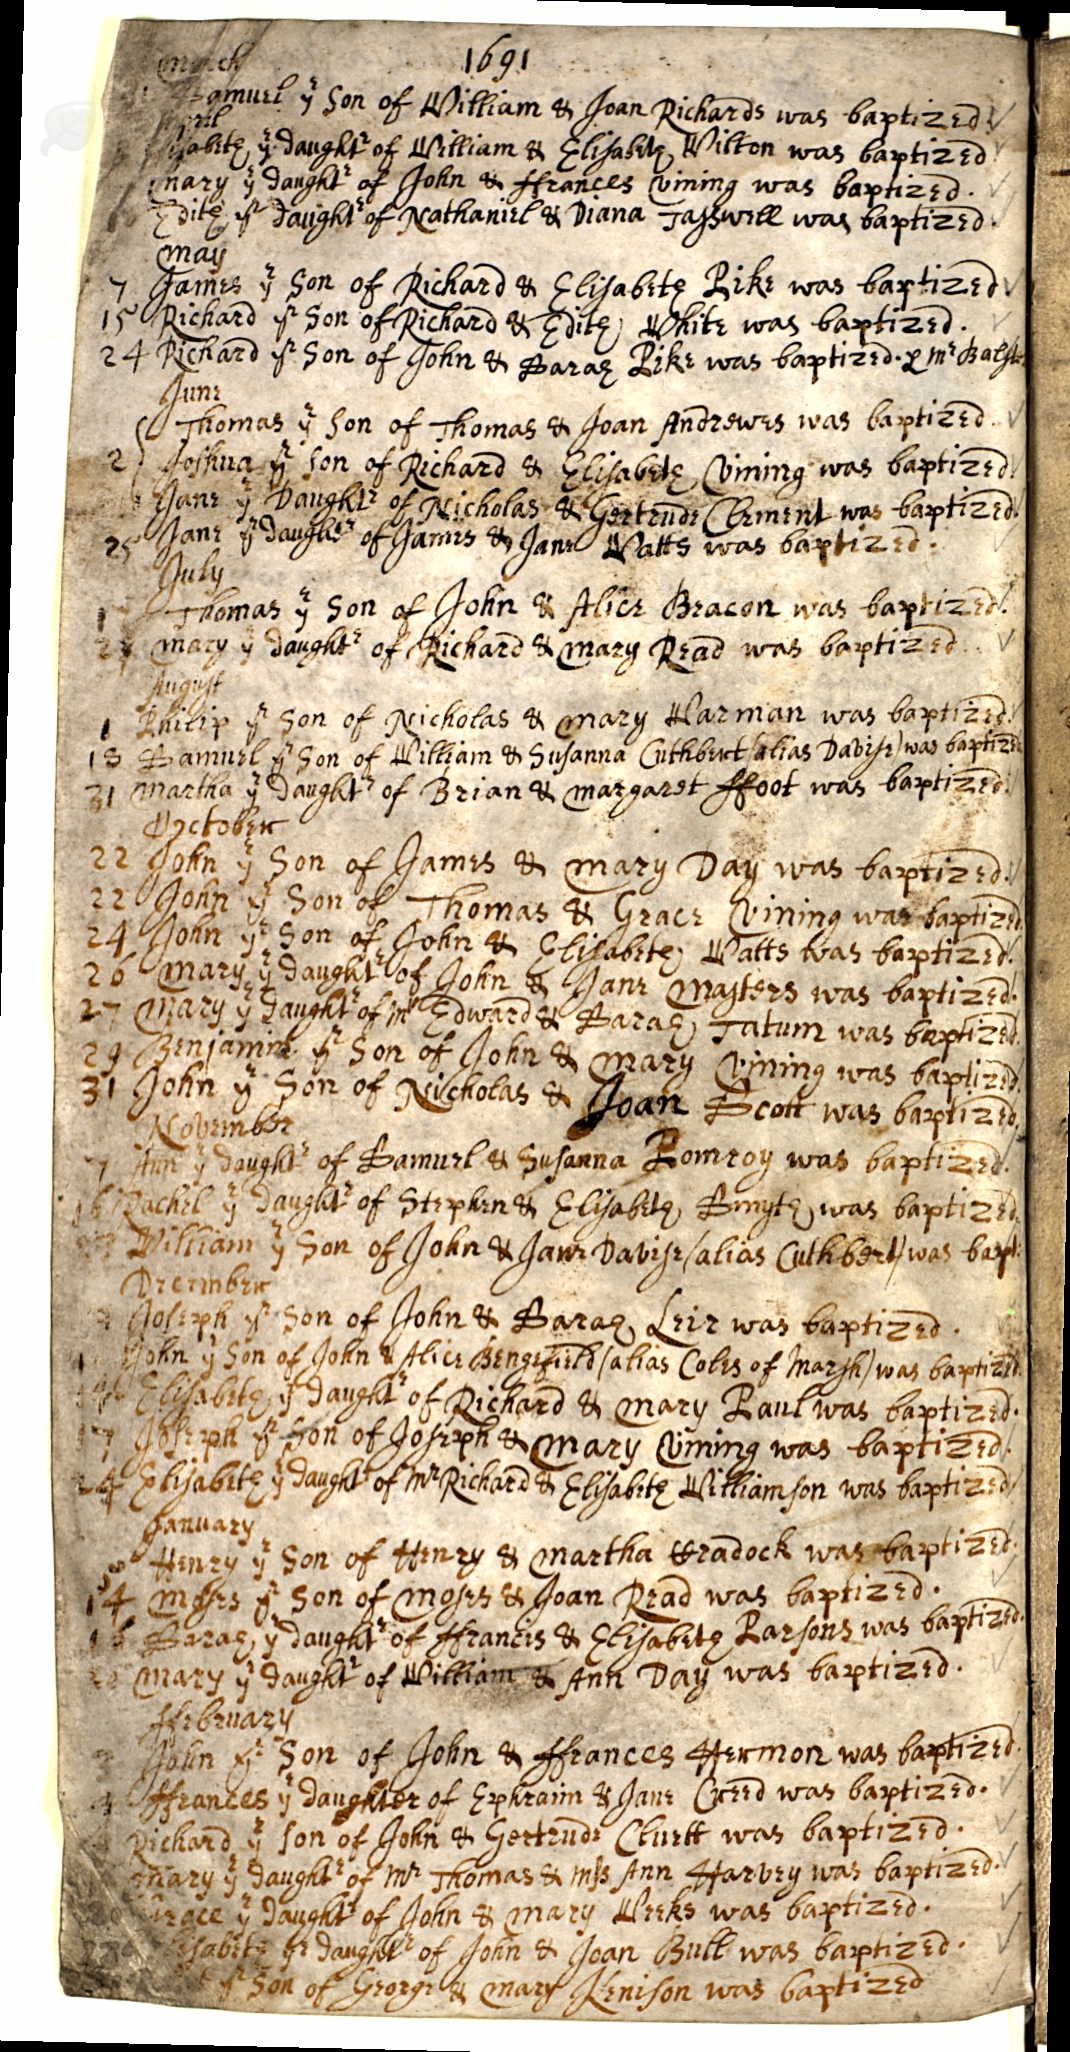 March 1691
Samuel yͤ Son of William & Joan Richards was baptized
April
Elisabeth yͤ daughtʳ of William & Elisabeth Wilton was baptized
mary yͤ daughtʳ of John & ffrances Vining was baptized.
Edith yͤ daughtʳ of Nathaniel & Diana Tasswell was baptized.
may
7 James yͤ Son of Richard & Elisabeth Pike was baptized
15 Richard yͤ Son of Richard & Edith White was baptized.
24 Richard yͤ Son of John & Sarah Pike was baptized. p mʳ
June
Thomas yͤ Son of Thomas & Joan Andrewes was baptized.
2 Joshua yͤ Son of Richard & Elisabeth Vining was baptized
Jane yͤ Daughtʳ of Nicholas & Gertrude Clement was baptized.
25 Jane yͤ daughtʳ of James & Jane Watts was baptized.
July
1 Thomas yͤ Son of John & Alice Beacon was baptized.
mary yͤ daughtʳ of Richard & mary Read was baptized.
August
1 Philip yͤ Son of Nicholas & mary Harman was baptized.
18 Samuel yͤ Son of William & Susanna Cuthbert (alias Davise) was baptized
31 martha yͤ daughtʳ of Brian & margaret ffoot was baptized.
October
22 John yͤ Son of James & mary Day was baptized.
22 John yͤ Son of Thomas & Grace Vining was baptized
24 John yͤ Son of John & Elisabeth Watts was baptized.
26 mary yͤ daughtʳ of John & Jane Masters was baptized.
27 mary yͤ daughtʳ of mʳ Edward & Sarah Tatum was baptized.
29 Benjamine yͤ Son of John & mary Vining was baptized.
31 John yͤ Son of Nicholas & Joan Scott was baptized
November
7 Ann yͤ daughtʳ of Samuel & Susanna Pomroy was baptized.
16 Rachel yͤ daughtʳ of Stephen & Elisabeth Smyth was baptized.
William yͤ Son of John & Jane Davise (alias Cuthbert) was bapt:
December
Joseph yͤ Son of John & Sarah Leir was baptized.
John yͤ Son of John & Alice Bengefield (alias Coles of Marsh) was baptized
Elisabeth yͤ daughtʳ of Richard & mary Paul was baptized.
17 Joseph yͤ Son of Joseph & mary Vining was baptized.
24 Elisabeth yͤ daughtʳ of mʳ Richard & Elisabeth Williamson was baptized
January
Henry yͤ Son of Henry & martha Cradock was baptized.
14 moses yͤ Son of moses & Joan Read was baptized.
Sarah yͤ daughtʳ of ffrancis & Elisabeth Parsons was baptized.
mary yͤ daughtʳ of William & Ann Day was baptized.
ffebruary
John yͤ Son of John & ffrances Hermon was baptized.
ffrances yͤ daughter of Ephraim & Jane Creed was baptized.
Richard yͤ Son of John & Gertrude Cluett was baptized.
mary yͤ daughtʳ of mʳ Thomas & mʳˢ Ann Harvey was baptized.
Grace yͤ daughtʳ of John & mary Weeks was baptized.
Elisabeth yͤ daughtʳ of John & Joan Bull was baptized.
yͤ Son of George & mary Kenison was baptized